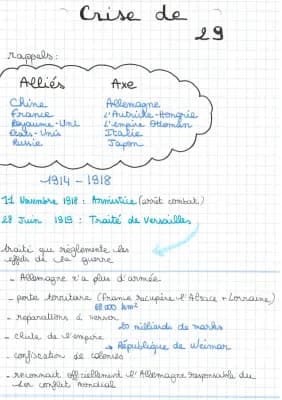 Crise de 29
rappels :
Alliés Axe
Chine Allemagne
France l'Autriche-Hongrie
Royaume-Uni l'empire Ottoman
États-Unis Italie
Russie Japon
1914 - 1918
11 Novembre 1918 : Armistice (arrêt combat)
28 Juin 1919 : Traité de Versailles
traité qui règlemente les
effets de la guerre
- Allemagne n'a plus d'armée
- perte territoire (France récupère l'Alsace + Lorraine)
km²
- réparations à verser
20 milliards de marks
- chute de l'empire
→ République de Weimar
- confiscation de colonies
- reconnait officiellement l'Allemagne responsable du
1er conflit mondial